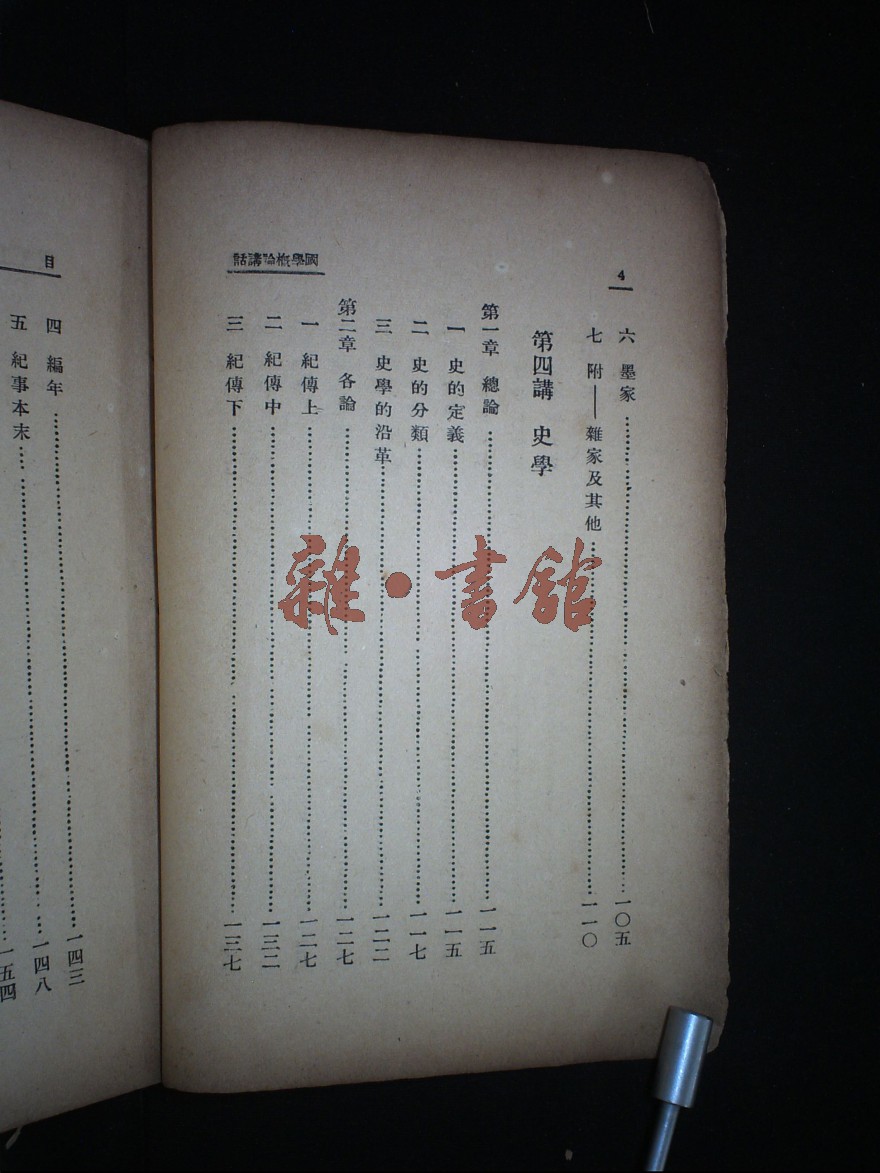 4
國學概論講話
六 墨家 一〇五
七 附——雜家及其他 一一〇
第四講 史學
第一章 總論 一一五
一 史的定義 一一五
二 史的分類 一一七
三 史學的沿革 一二二
第二章 各論 一二七
一 紀傳上 一二七
二 紀傳中 一三二
三 紀傳下 一三七
目
四 編年 一四三
五 紀事本末 一四八
一五四
雜·書館